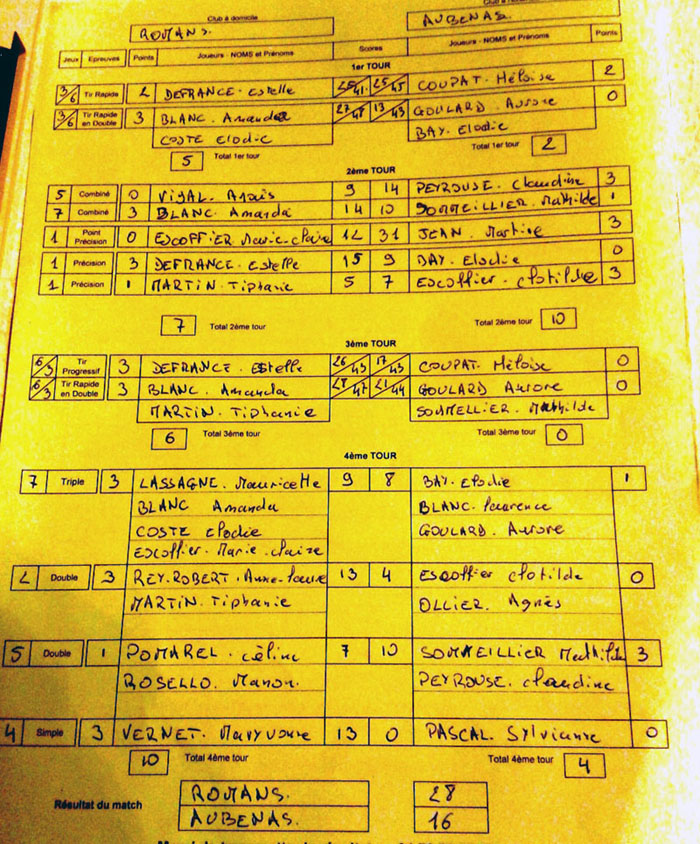 Club à domicile
ROMANS. AUBENAS.
Jeux Epreuves Points Joueurs - NOMS et Prénoms Scores Joueurs - NOMS et Prénoms Points
1er TOUR
3/6 Tir Rapide 2 DEFRANCE. Estelle 25/45 COUPAT. Héloïse 2
3/6 Tir Rapide en Double 3 BLANC. Amanda 27/45 13/43 GOULARD. Aurore 0
COSTE Elodie BAY. Elodie
5 Total 1er tour Total 1er tour 2
2ème TOUR
5 Combiné 0 VIJAL. Anaïs 9 14 PEYROUSE. Claudine 3
7 Combiné 3 BLANC. Amanda 14 10 SOMMEILLIER. Mathilde 1
1 Point Précision 0 ESCOFFIER Marie-Claire 12 31 JEAN. Martine 3
1 Précision 3 DEFRANCE. Estelle 15 9 BAY. Elodie 0
1 Précision 1 MARTIN. Tiphanie 5 7 Escoffier. Clotilde 3
7 Total 2ème tour Total 2ème tour 10
3ème TOUR
6/3 Tir Progressif 3 DEFRANCE. Estelle 26/43 17/43 COUPAT. Héloïse 0
6/3 Tir Rapide en Double 3 BLANC. Amanda 28/47 21/44 GOULARD Aurore 0
MARTIN. Tiphanie SOMMELLIER. Mathilde
6 Total 3ème tour Total 3ème tour 0
4ème TOUR
7 Triple 3 LASSAGNE. Mauricette 9 8 BAY. Elodie 1
BLANC Amanda BLANC. Laurence
COSTE Elodie GOULARD. Aurore
Escoffier. Marie. Claire
2 Double 3 REY.ROBERT. Anne-Laure 13 4 Escoffier Clotilde 0
MARTIN. Tiphanie OLLIER. Agnès
5 Double 1 POMAREL. Céline 7 10 SOMMEILLIER Mathilde 3
ROSELLO. Manon. PEYROUSE. Claudine
4 Simple 3 VERNET. Maryvonne 13 0 PASCAL. Sylvianne 0
10 Total 4ème tour Total 4ème tour 4
Résultat du match ROMANS. 28
AUBENAS. 16